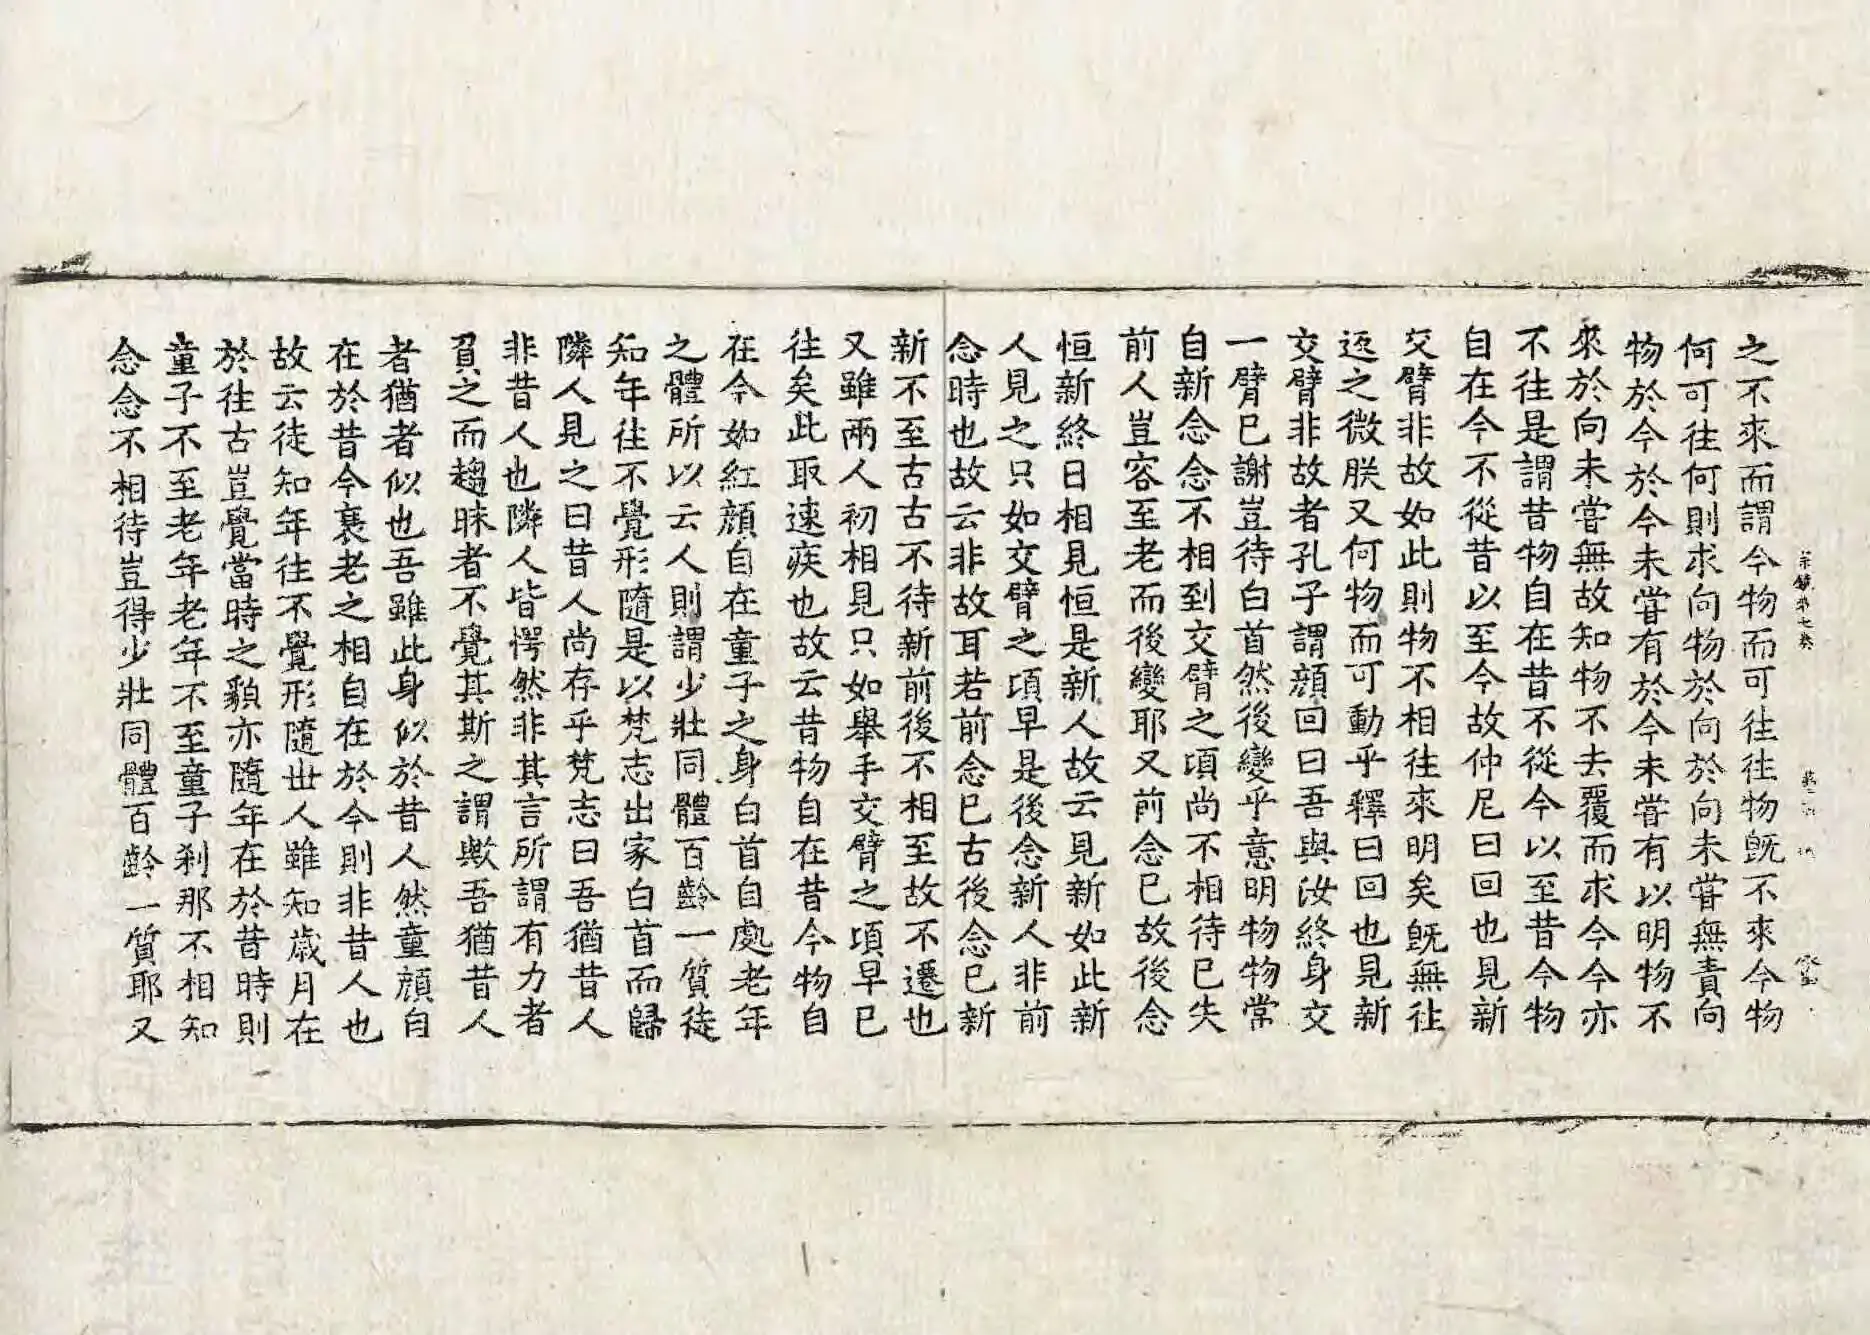 宗鏡第七卷
之不來而謂今物而可往往物既不來今物
何可往何則求向物於向於向未嘗無責向
物於今於今未嘗有於今未嘗有以明物不
來於向未嘗無故知物不去覆而求今今亦
不往是謂昔物自在昔不從今以至昔今物
自在今不從昔以至今故仲尼曰回也見新
交臂非故如此則物不相往來明矣既無往
返之微朕又何物而可動乎釋曰回也見新
交臂非故者孔子謂顔回曰吾與汝終身交
一臂已謝豈待白首然後變乎意明物物常
自新念念不相到交臂之頃尚不相待已失
前人豈容至老而後變耶又前念已故後念
恒新終日相見恒是新人故云見新如此新
人見之只如交臂之頃早是後念新人非前
念時也故云非故耳若前念已古後念已新
新不至古古不待新前後不相至故不遷也
又雖兩人初相見只如舉手交臂之頃早已
往矣此取速疾也故云昔物自在昔今物自
在今如紅顔自在童子之身白首自處老年
之體所以云人則謂少壯同體百齡一質徒
知年往不覺形隨是以梵志出家白首而歸
隣人見之曰昔人尚存乎梵志曰吾猶昔人
非昔人也隣人皆愕然非其言所謂有力者
負之而趨昧者不覺其斯之謂歟吾猶昔人
者猶者似也吾雖此身似於昔人然童顔自
在於昔今衰老之相自在於今則非昔人也
故云徒知年往不覺形隨世人雖知歳月在
於往古豈覺當時之貌亦隨年在於昔時則
童子不至老年老年不至童子刹那不相知
念念不相待豈得少壯同體百齡一質耶又